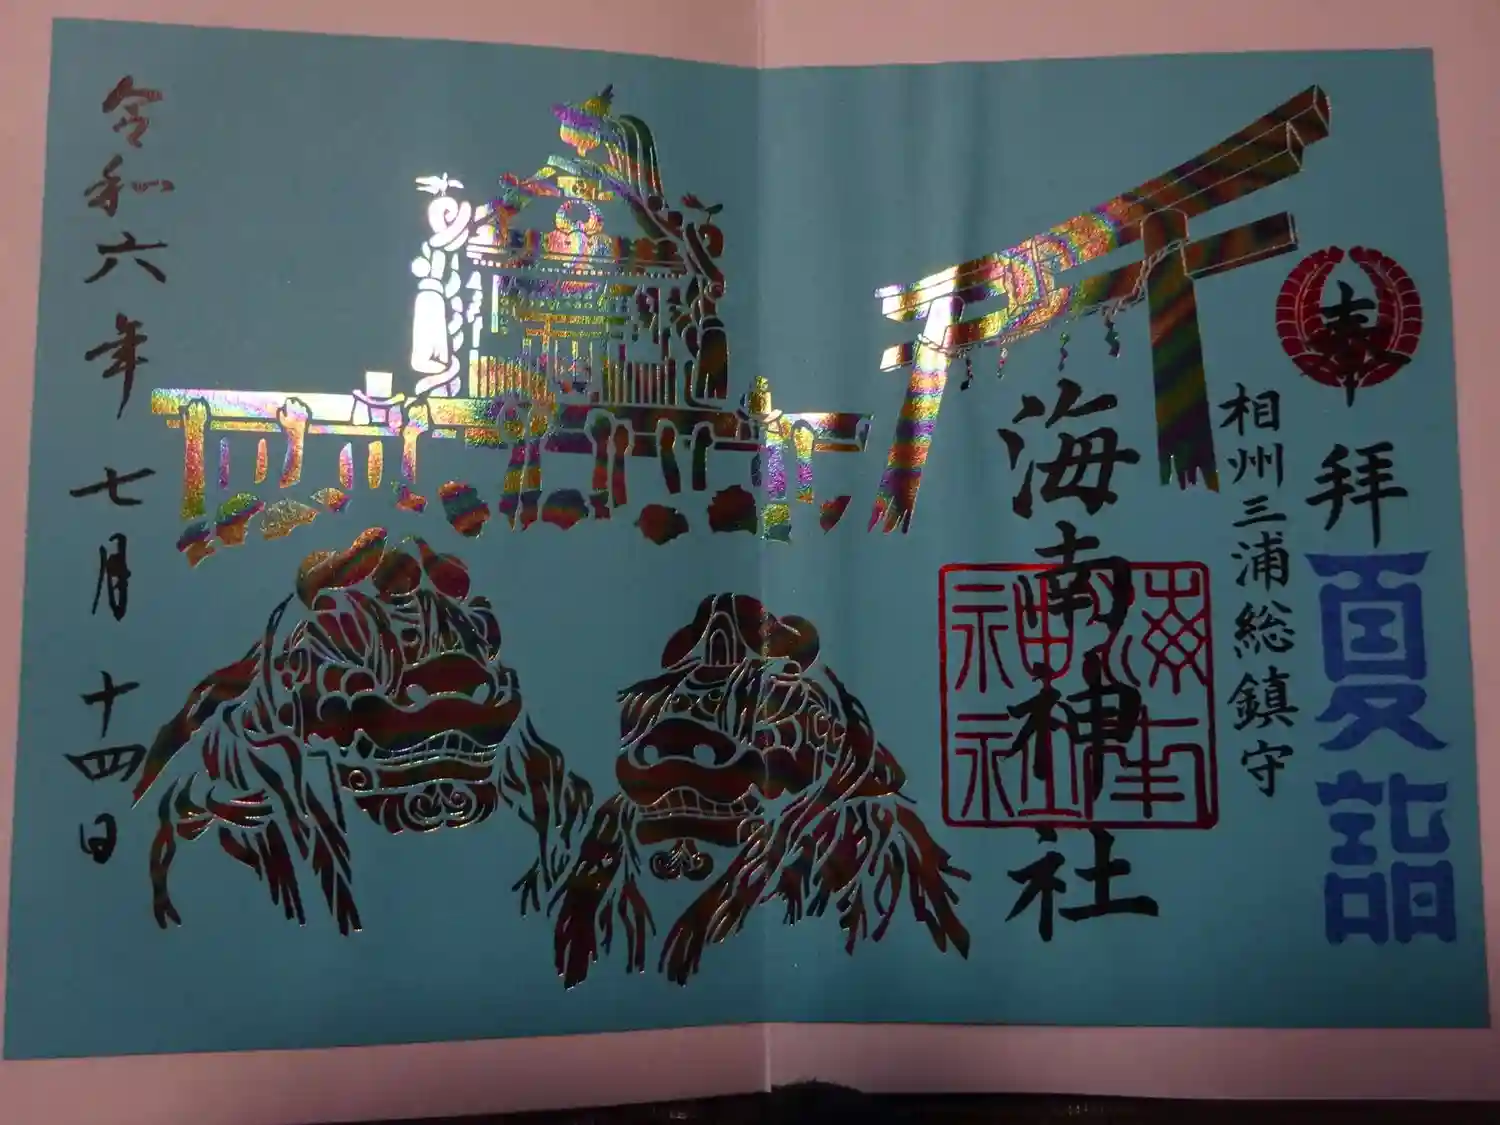 奉拝
夏詣
相州三浦総鎮守
海南神社
海南
神社
令和六年七月十四日